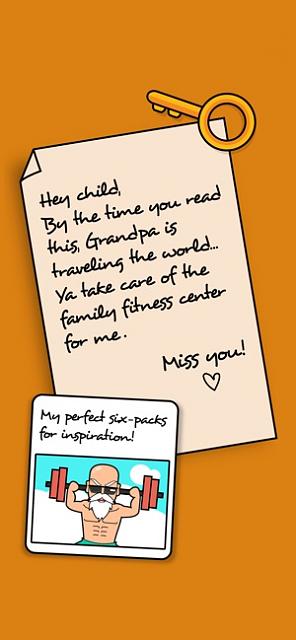 Hey child,
By the time you read
this, Grandpa is
traveling the world...
Ya take care of the
family fitness center
for me.
Miss you!
My perfect six-packs
for inspiration!